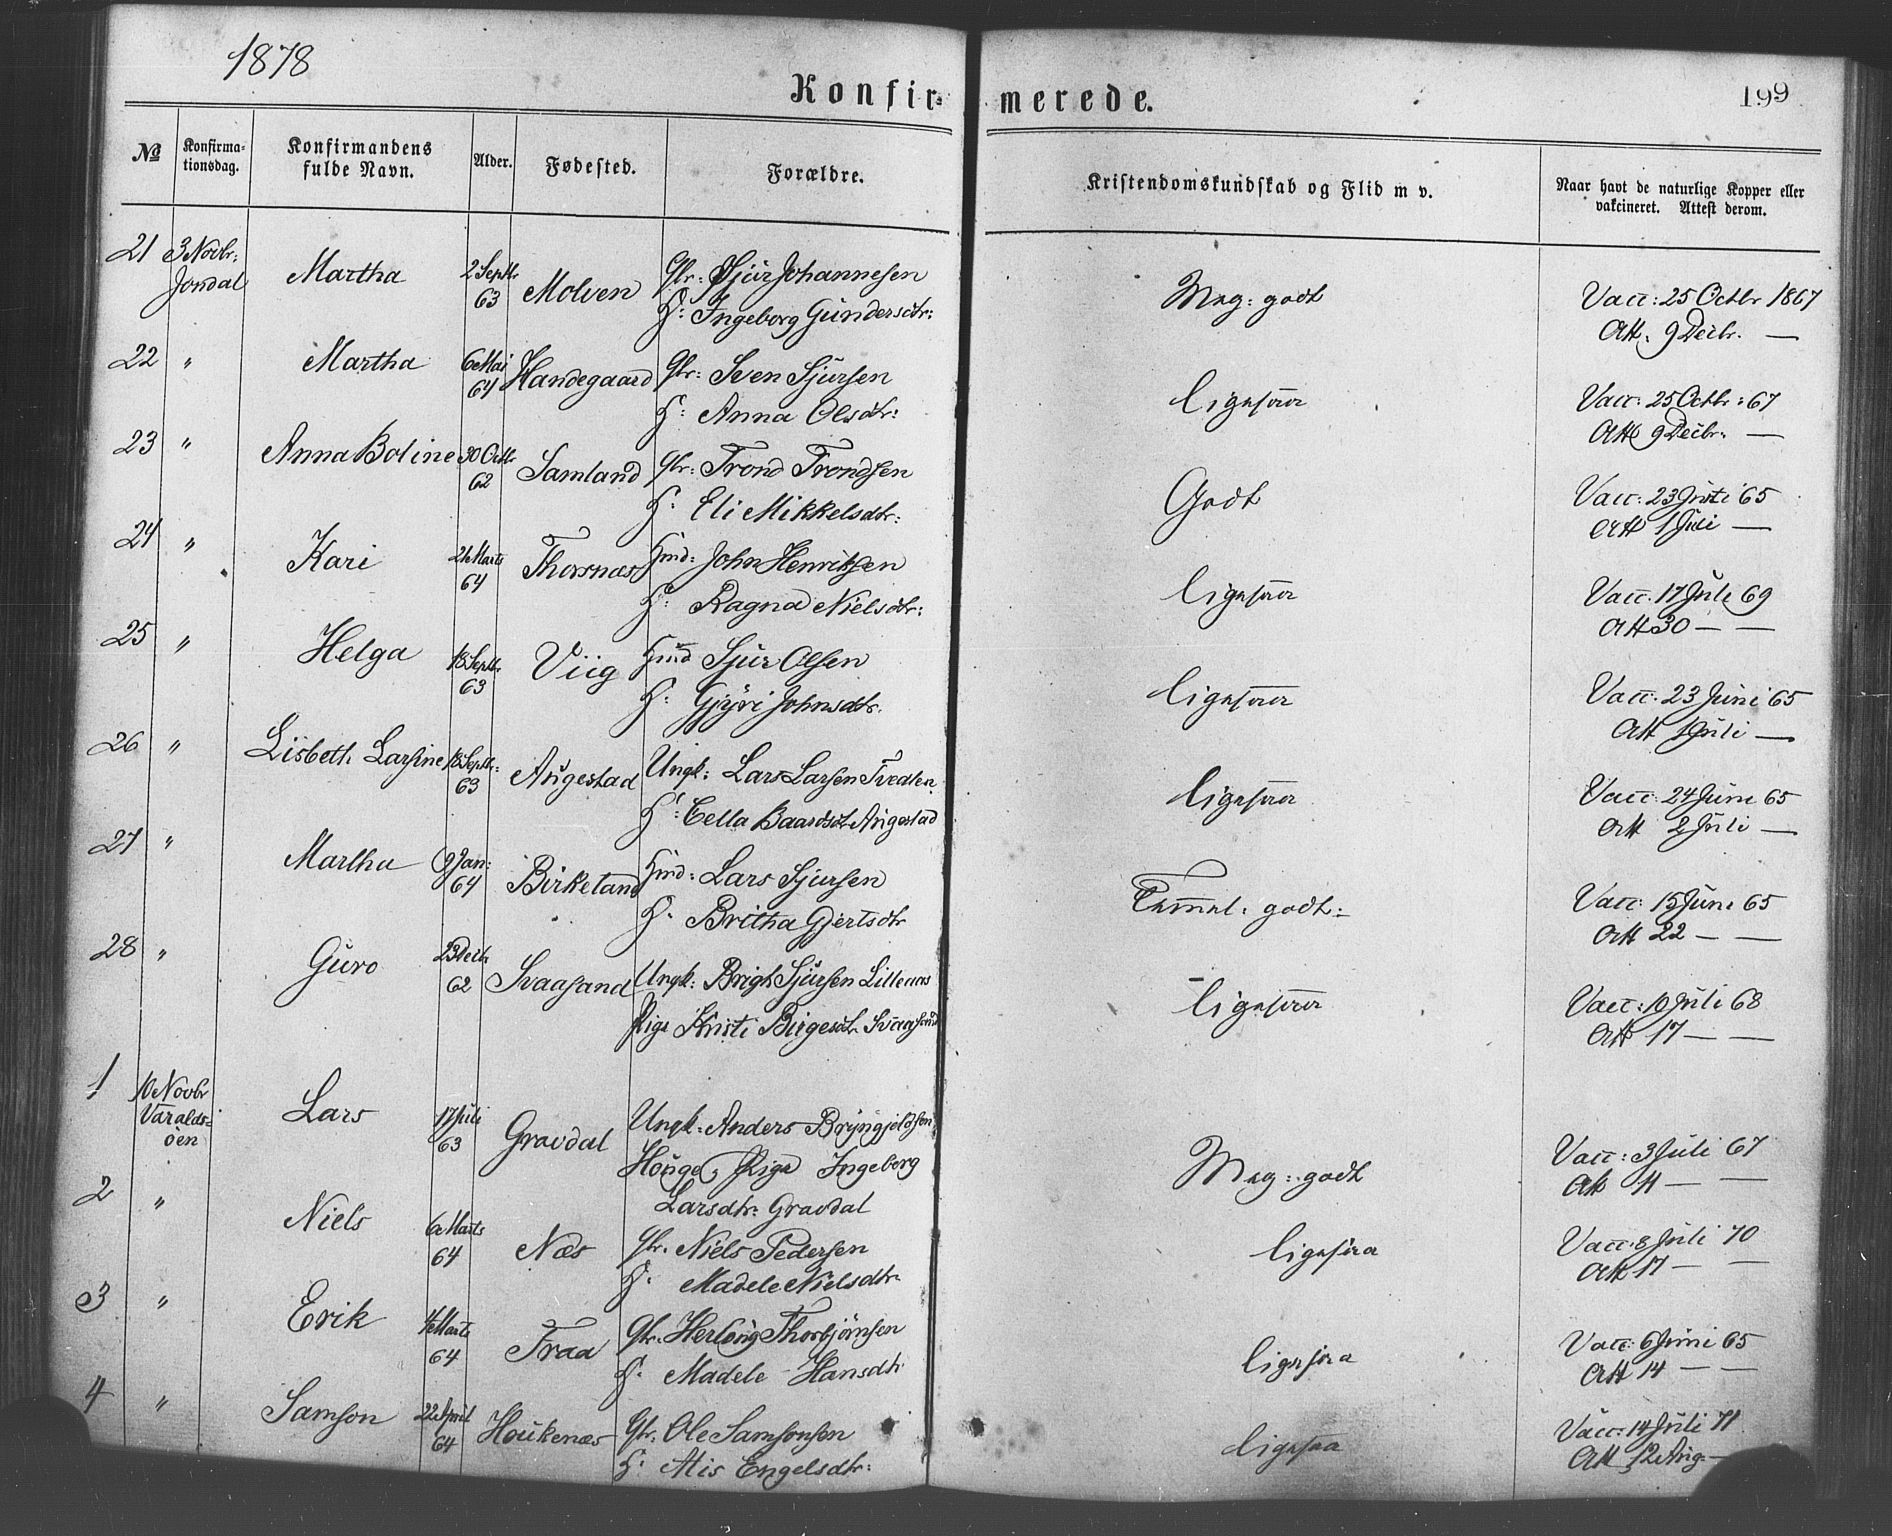 1878
Konfir- merede.
199
No
Konfirma-
tionsdag.
Konfirmandens
fulde Navn.
Alder.
Fødested.
Forældre.
Kristendomskundskab og Flid m v.
Naar havt de naturlige Kopper eller
vakcineret. Attest derom.
21 3 Novbr: Martha 2 Septbr Molven Gbr: Sjur Johannesen Meg: godt Vacc: 25 Octbr 1867
Jondal 63 H: Ingeborg Gundersdtr: Att. 9 Decbr. —
22 " Martha 6 Mai Handegaard Gbr: Sven Sjursen ligesaa Vacc: 25 Octbr: 67
64 H: Anna Olsdtr: Att 9 Decbr. —
23 " Anna Boline 30 Octbr Samland Gbr: Trond Trondsen Godt Vacc: 23 Juni 65
62 H: Eli Mikkelsdtr: Att 1 Juli —
24 " Kari Marts Thorsnæs Hmd: John Henriksen ligesaa Vacc. 17 Juli 69
64 H: Ragna Nielsdtr: Att 30 — —
25 " Helga 18 Septbr. Viig Hmd Sjur Olsen ligesaa Vacc. 23 Juni 65
63 H: Gjyri Johnsdtr. Att 1 Juli —
26 " Lisbeth Larsine 18 Septbr: Augestad Ungk: Lars Larsen Tvedten ligesaa Vacc: 24 Juni 65
63 H: Cella Baardsdt Augestad Att 2 Juli —
27 " Martha 9 Jan: Birkeland Hmd: Lars Sjursen Temmel: godt: Vacc: 15 Juni 65
64 H. Britha Gjertsdtr Att 22 — —
28 " Guro 23 Decb. Svaasand Ungk: Sjursen Lillenæs ligesaa Vacc: 10 Juli 68
62 Pige Kristi Birgesdtr. Svaasand Att 17 — —
1 10 Novbr Lars 17 Juli Gravdal Ungk: Anders Bryngjeldsen Meg: godt Vacc: 3 Juli 67
Varalds- 63 Houge, Pige Ingeborg Att 11 — —
öen Larsdtr: Gravdal
2 " Niels 6 Marts Næs Gbr. Niels Pedersen ligesaa Vacc. 8 Juli 70
64 H. Madele Nielsdtr. Att 17 — —
3 " Erik Marts Traa Gbr. Herlaug Thorbjörnsen ligesaa Vacc: 6 Juni 65
64 H. Madele Hansdtr Att 14 — —
4 " Samson 22 April Houkenæs Gbr. Ole Samsonsen ligesaa Vacc: 14 Juli 71
64 H. Engelsdtr: Att 12 Aug. —